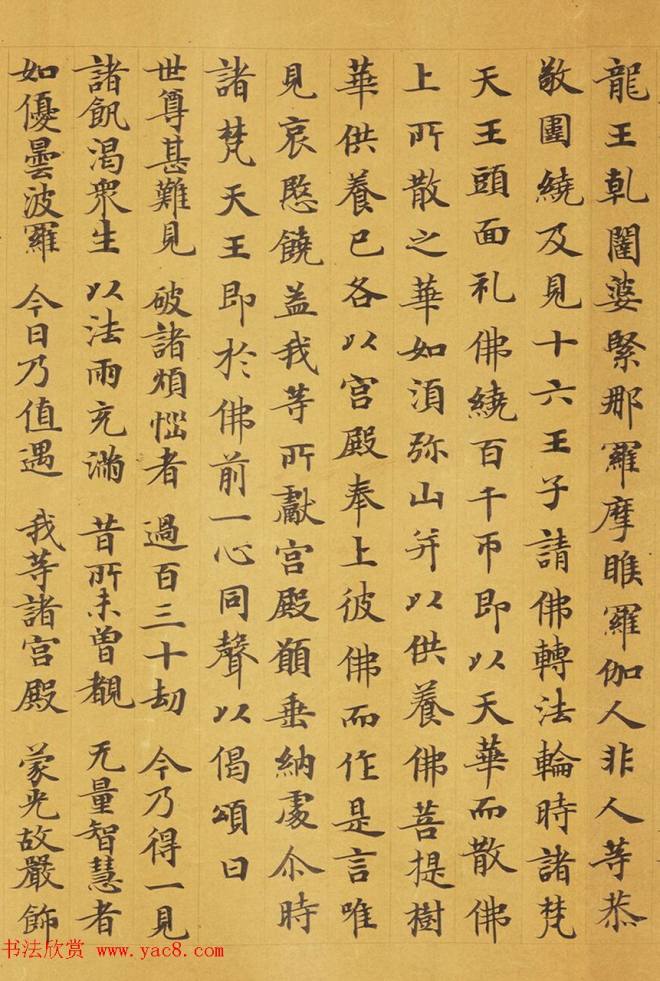 龍王乹闥婆緊那羅摩睺羅伽人非人等恭
敬圍繞及見十六王子請佛轉法輪時諸梵
天王頭面礼佛繞百千帀即以天華而散佛
上所散之華如湏弥山并以供養佛菩提樹
華供養已各以宮殿奉上彼佛而作是言唯
見哀愍饒益我等所獻宮殿願垂納處尒時
諸梵天王即於佛前一心同聲以偈頌曰
世尊甚難見 破諸煩惱者 過百三十劫 今乃得一見
諸飢渴衆生 以法雨充滿 昔所未曾覩 无量智慧者
如優曇波羅 今日乃值遇 我等諸宮殿 蒙光故嚴飾
书法欣赏 www.yac8.com